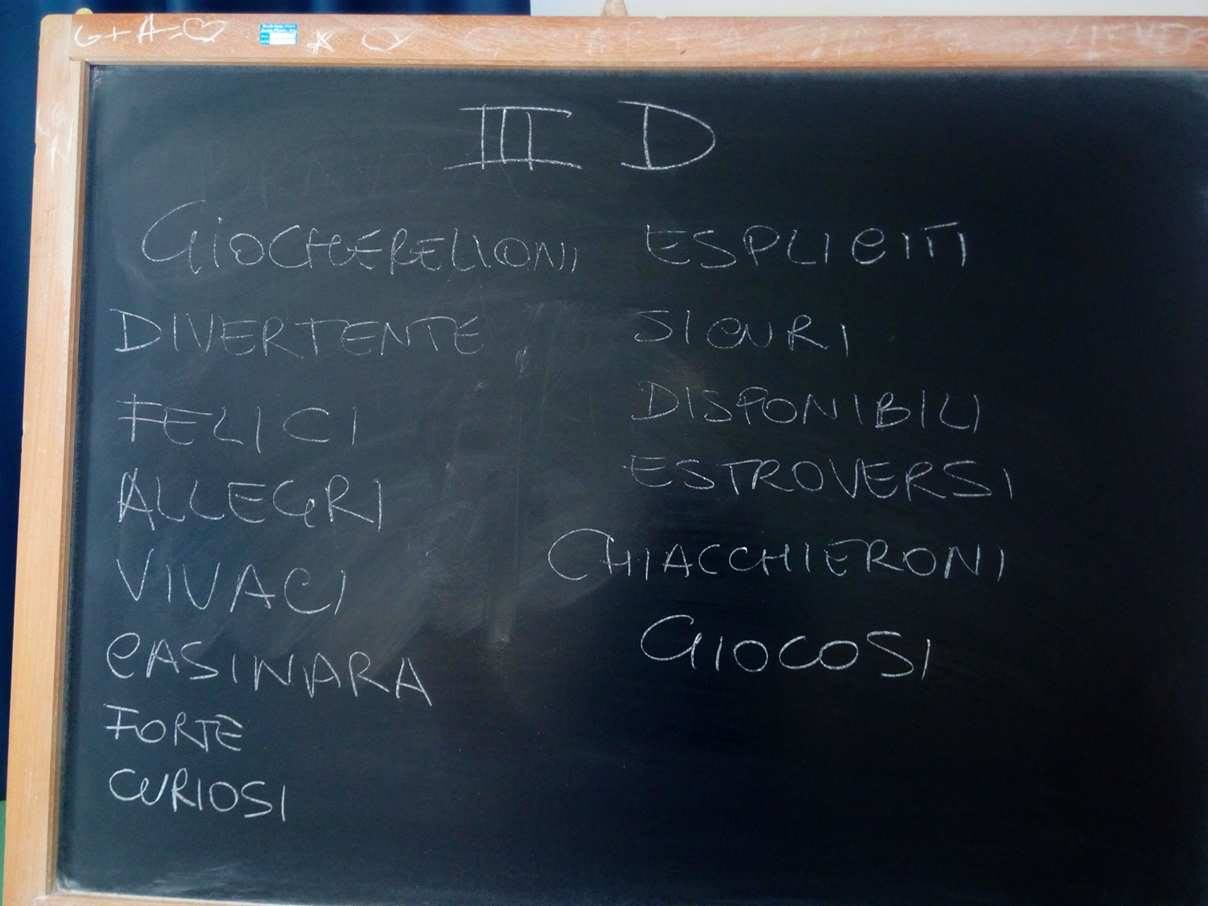 G + A = ♡
III D
GIOCHERELLONI
DIVERTENTE
FELICI
ALLEGRI
VIVACI
CASINARA
FORTE
CURIOSI
ESPLICITI
SICURI
DISPONIBILI
ESTROVERSI
CHIACCHIERONI
GIOCOSI